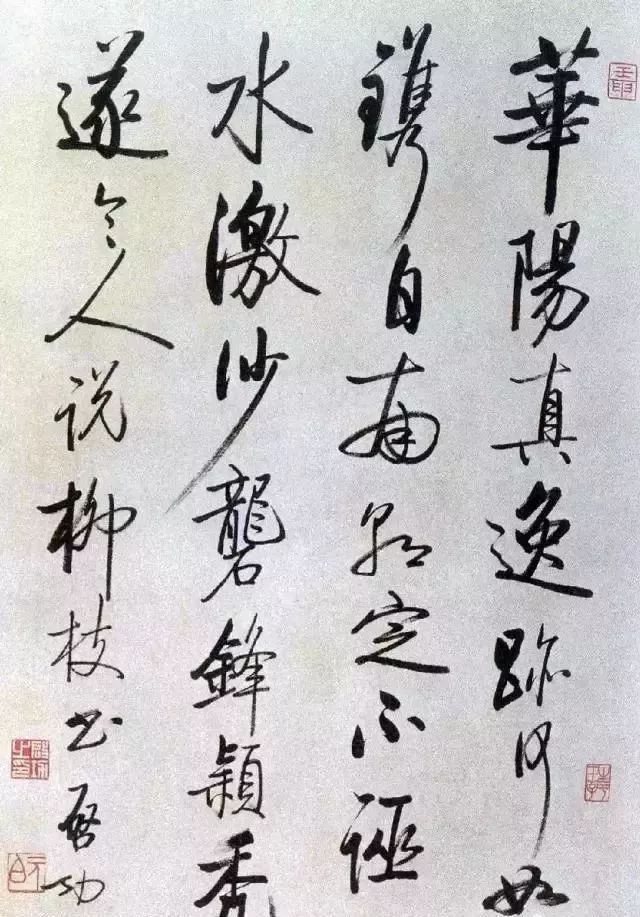 華陽真逸跡何如
鐫自南朝定不誣
水激沙礱鋒穎秀
遂令人说柳枝书 啟功